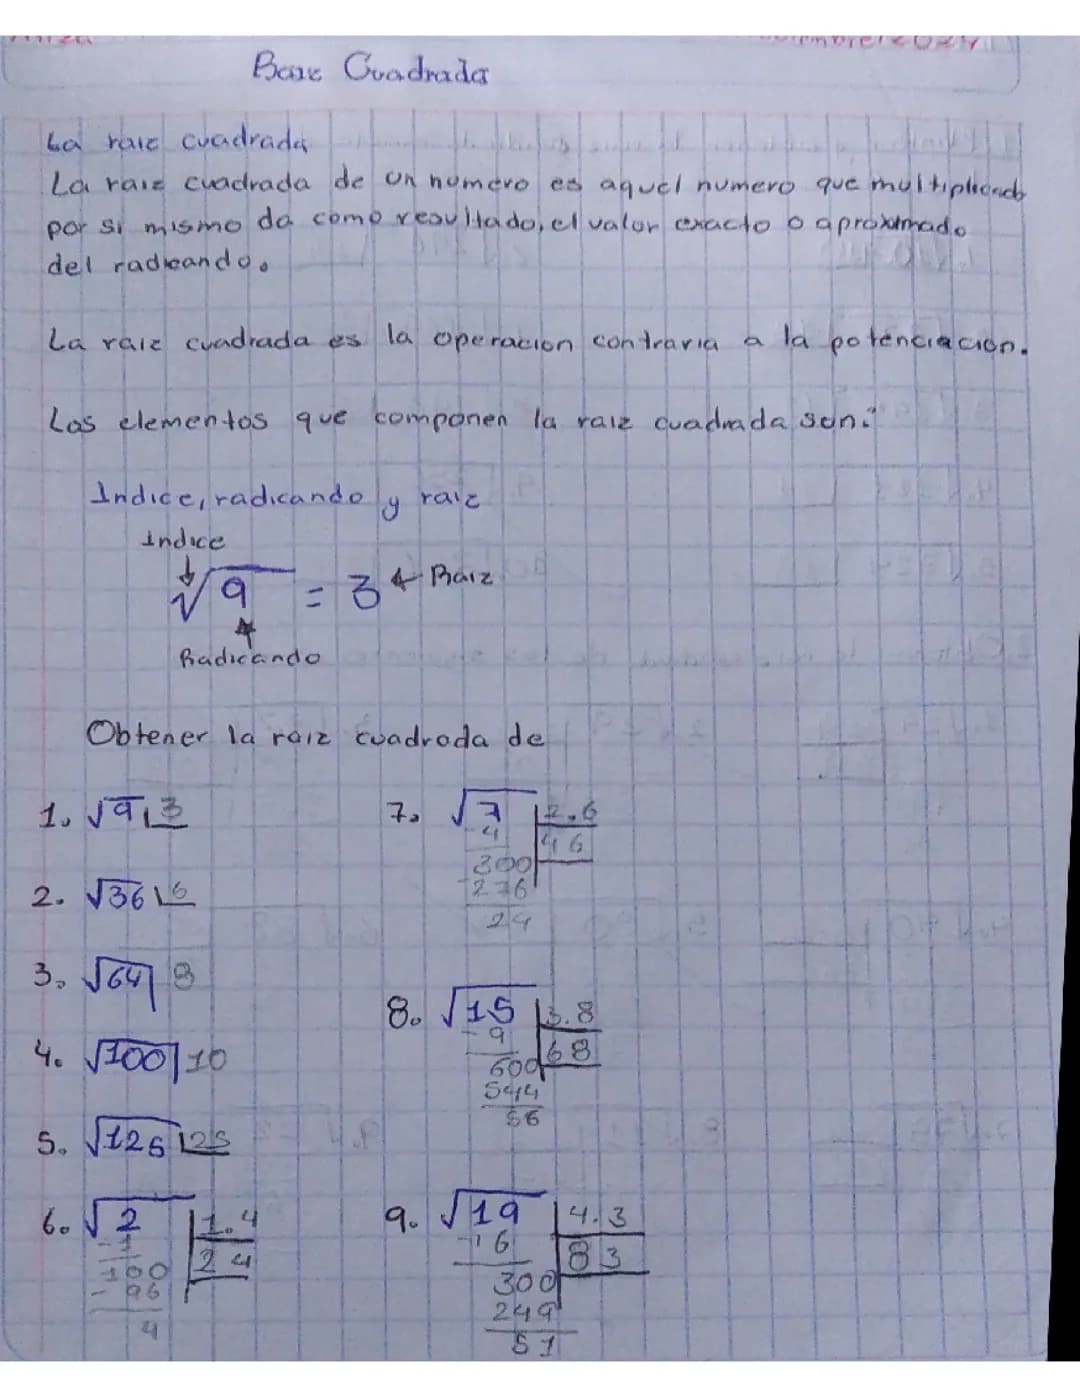 Raiz Cuadrada
La raiz cuadrada
La raiz cuadrada de un numero es aquel numero que multiplicado
por si mismo da como resultado, el valor exacto o aproximado
del radicando.
La raiz cuadrada es la operacion contraria a la potenciacion.
Los elementos que componen la raiz cuadrada son:
Indice, radicando y raiz
Indice
√9 = 3 ← Raiz
Radicando
Obtener la raiz cuadrada de
1. √9 3
2. √36 6
3. √64 8
4. √100 10
5. √125 25
6. √2 1.4
-1 24
100
- 96
4
7. √7 2.6
-4 46
300
-276
24
8. √15 3.8
-9 68
600
544
56
9. √19 4.3
-16 83
300
249
51